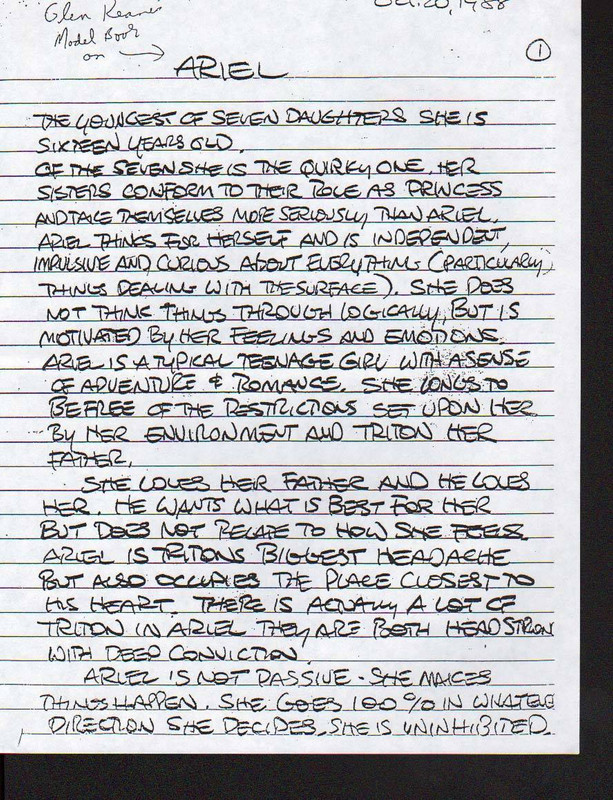 Oct. 20, 1988
Glen Keane's
Model Book
on →
1
ARIEL
THE YOUNGEST OF SEVEN DAUGHTERS SHE IS
SIXTEEN YEARS OLD.
OF THE SEVEN SHE IS THE QUIRKY ONE. HER
SISTERS CONFORM TO THEIR ROLE AS PRINCESS
AND TAKE THEMSELVES MORE SERIOUSLY THAN ARIEL.
ARIEL THINGS FOR HERSELF AND IS INDEPENDENT,
IMPULSIVE AND CURIOUS ABOUT EVERYTHING (PARTICULARLY
THINGS DEALING WITH THE SURFACE). SHE DOES
NOT THINK THINGS THROUGH LOGICALLY, BUT IS
MOTIVATED BY HER FEELINGS AND EMOTIONS.
ARIEL IS A TYPICAL TEENAGE GIRL WITH A SENSE
OF ADVENTURE & ROMANCE. SHE LONGS TO
BE FREE OF THE RESTRICTIONS SET UPON HER
BY HER ENVIRONMENT AND TRITON HER
FATHER.
SHE LOVES HER FATHER AND HE LOVES
HER. HE WANTS WHAT IS BEST FOR HER
BUT DOES NOT RELATE TO HOW SHE FEELS.
ARIEL IS TRITONS BIGGEST HEADACHE
BUT ALSO OCCUPIES THE PLACE CLOSEST TO
HIS HEART. THERE IS ACTUALLY A LOT OF
TRITON IN ARIEL. THEY ARE BOTH HEADSTRON
WITH DEEP CONVICTION.
ARIEL IS NOT PASSIVE - SHE MAKES
THINGS HAPPEN. SHE GOES 100% IN WHATEVE
DIRECTION SHE DECIDES. SHE IS UNINHIBITED.